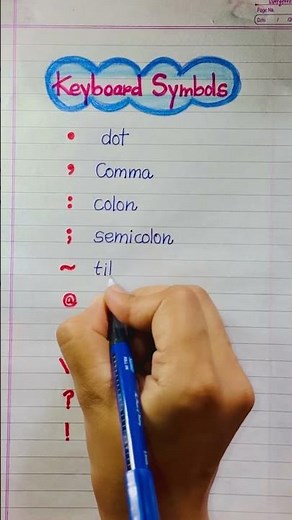 Page No.
Date
Keyboard Symbols
• dot
, Comma
: colon
; semicolon
~ til
@
\
?
!